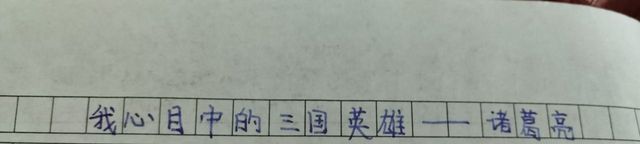 我心目中的三国英雄——诸葛亮